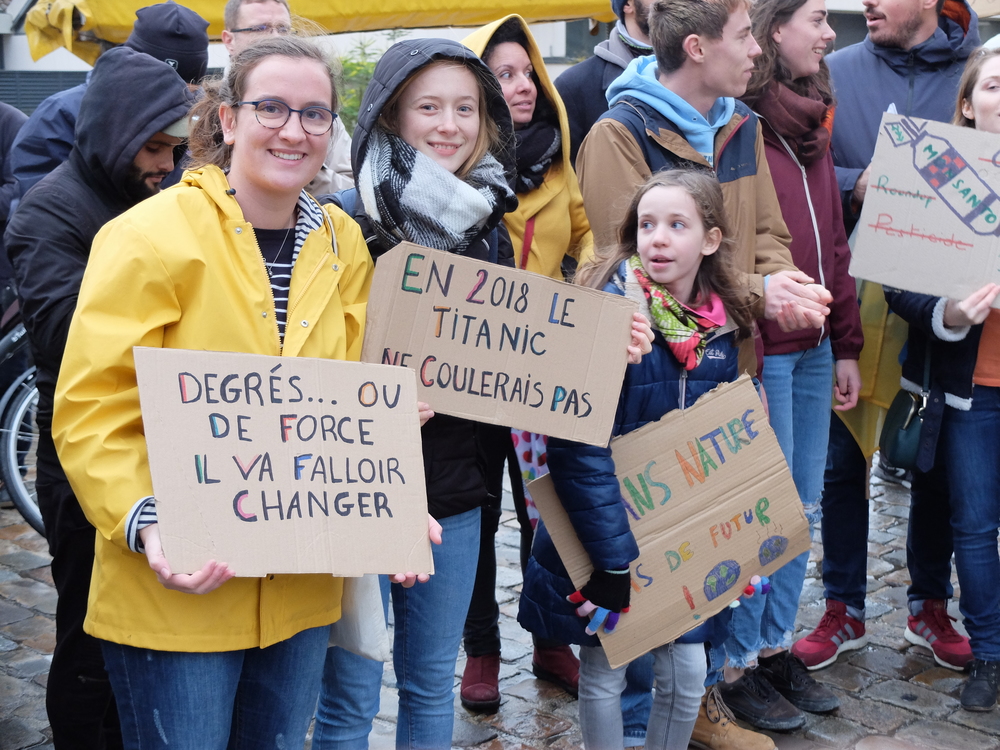 DEGRÉS... OU
DE FORCE
IL VA FALLOIR
CHANGER
EN 2018 LE
TITANIC
NE COULERAIS PAS
SANS NATURE
PAS DE FUTUR
!
MONSANTO
Roundup
Pesticide